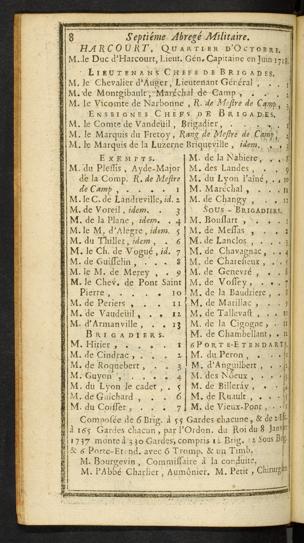 8 Septiéme Abregé Militaire.
HARCOURT, QUARTIER D'OCTOBRE.
M. le Duc d'Harcourt, Lieut. Gén. Capitaine en Juin 1718.
LIEUTENANS CHEFS DE BRIGADES.
M. le Chevalier d'Auger, Lieutenant Général . . . 1
M. de Montgibault, Maréchal de Camp , . . . 2
M. le Vicomte de Narbonne, R. de Mestre de Camp,
ENSEIGNES CHEFS DE BRIGADES.
M. le Comte de Vandeüil, Brigadier, . . .
M. le Marquis du Fretoy, Rang de Mestre de Camp,
M. le Marquis de la Luzerne Briqueville, idem,
EXEMPTS.
M. du Plessis, Ayde-Major
de la Comp. R. de Mestre
de Camp , . . . 1
M. le C. de Landreville, id. 2
M. de Voreil, idem, . 3
M. de la Plane, idem, . 4
M. le M. d'Alegre, idem. 5
M. du Thillet, idem, . 6
M. le Ch. de Vogué, id. 7
M. de Guisselin, . . 8
M. le M. de Merey , . 9
M. le Chev. de Pont Saint
Pierre, . . . . 10
M. de Periers , . . 11
M. de Vaudeüil, . . 12
M. d'Armanville , . . 13
BRIGADIERS.
M. Hirier, . . . 1
M. de Cindrac, . . . 2
M. de Roquebert, . . 3
M. Guyon, . . . 4
M. du Lyon le cadet, . 5
M. de Guichard , . . 6
M. du Coisset, . . . 7
M. de la Nabiere, . . 8
M. des Landes , . . 9
M. du Lyon l'aîné, . . 10
M. Maréchal , . . 11
M. de Changy , . . 12
SOUS-BRIGADIERS.
M. Boussart , . . 1
M. de Messas , . . 2
M. de Lanclos , . . 3
M. de Chavagnac, . .
M. de Charesieux , . 5
M. de Genevré , . . 6
M. de Vossey, . . 7
M. de la Baudriere , . 8
M. de Marillac , . .
M. de Tallevast , . . 10
M. de la Cigogne , . 11
M. de Chambellant, . 12
6 PORTE-ETENDARTS.
M. du Peron , . . 1
M. d'Anguilbert , . .
M. des Noeux , . . .
M. de Billeráv, . . .
M. de Ruault, . . .
M. de Vieux-Pont, . .
Composée de 6 Brig. à 55 Gardes chacune, & de
à 165 Gardes chacun, par l'Ordon. du Roi du 8 Janvier
1737 monte à 330 Gardes, compris 12 Brig. 12 Sous Brig.
& 6 Porte-Etend. avec 6 Tromp. & un Timb.
M. Bourgevin, Commissaire à la conduite,
M. l'Abbé Charlier, Aumônier. M. Petit, Chirurgien